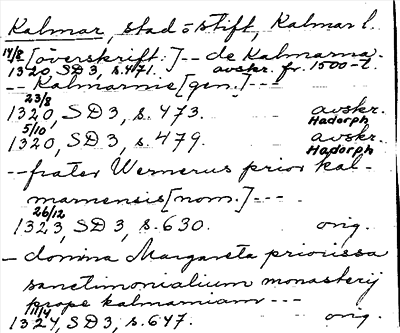 Kalmar, stad o stift, Kalmar l.
14/8 [överskrift:] -- de Kalmarna.
1320, SD 3, s. 471. avskr. fr. 1500-t.
-- Kalmarnie [gen.] ---
23/8
1320, SD 3, s. 473. avskr.
Hadorph
5/10
1320, SD 3, s. 479. avskr.
Hadorph
-- frater Wernerus prior kal-
marnensis [nom.] ---
26/12
1323, SD 3, s. 630. orig.
- domina Margareta priorissa
sanctimonialium monasterij
prope kalmarniam ---
11/4
1324, SD 3, s. 647. orig.